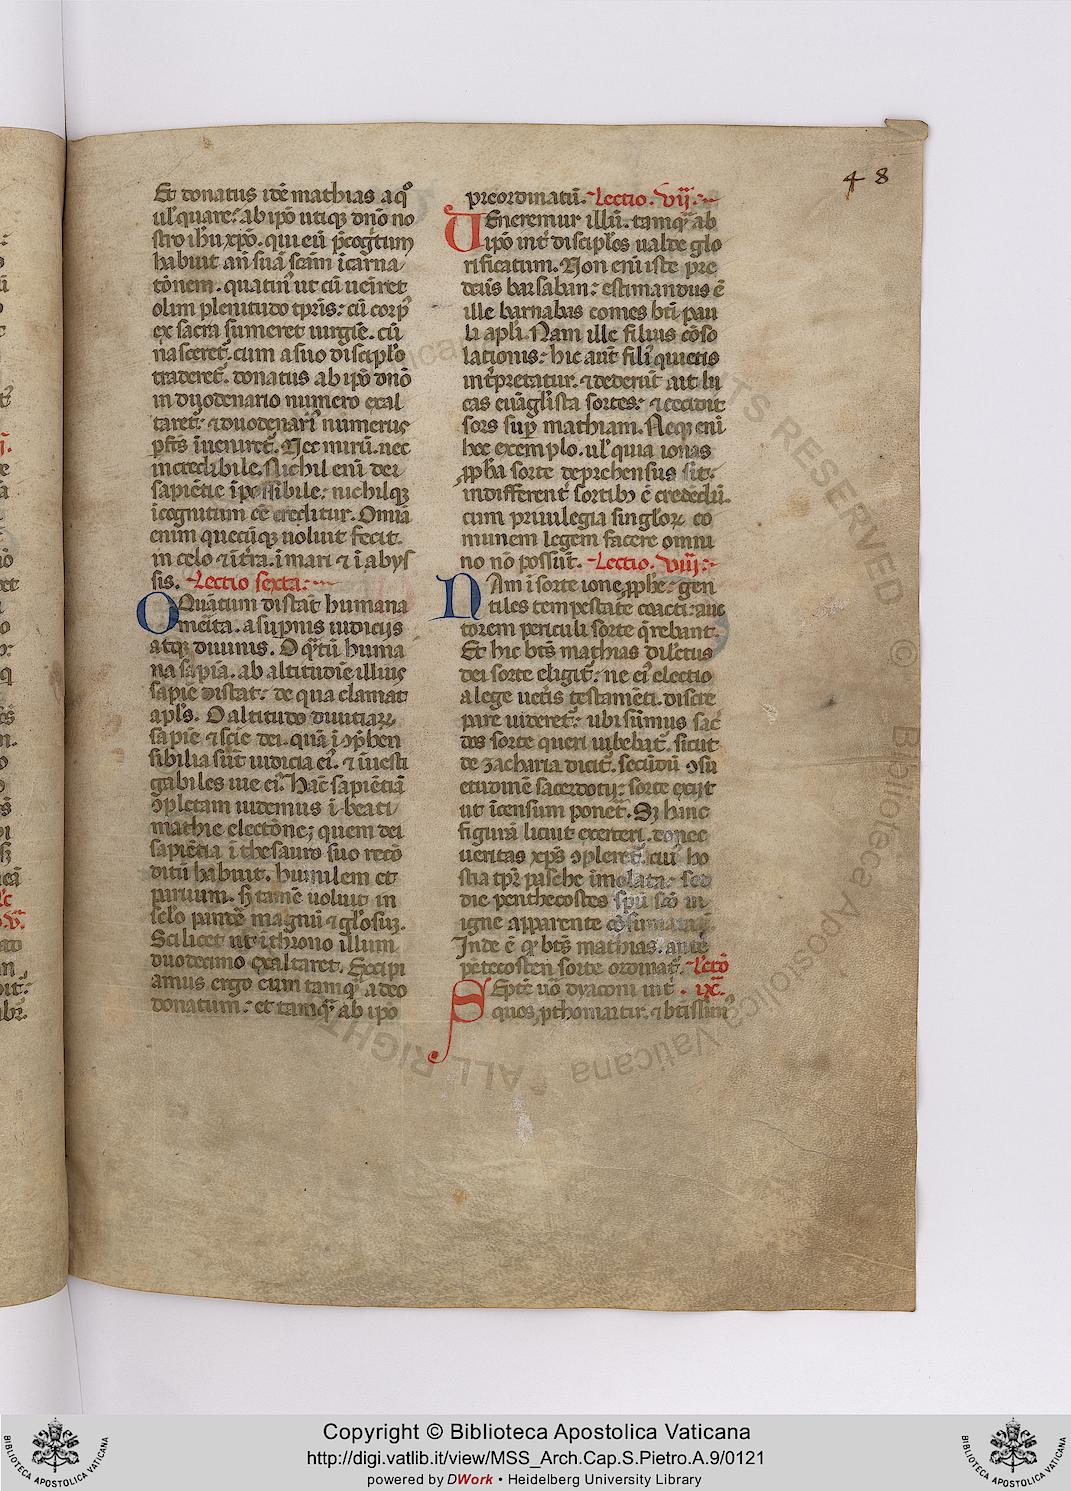 48
Et donatus idē mathias a q°
ul' quare? ab ip̄o utiqꝫ dn̄o no
stro ih̄u xp̄o. qui eū p̄cogitum
habuit an̄ suā scām īcarna
tōnem. quatin' ut cū ueīret
olim plenitudo tp̄ris: cū corp'
ex sacra sumeret uirgīe. cū
nasceret͛. cum a suo discipl'o
traderet͛. donatus ab ip̄o dn̄o
in duodenario numero exal
taret͛: ⁊ duodenari' numerus
ꝑfc̄s īueniret͛. Nec mirū. nec
incredibile. Nichil enī dei
sapiētie īpossibile: nichilqꝫ
īcognitum eē creditur. Omīa
enim quecūqꝫ uoluit fecit.
in celo ⁊ ī t͛ra. ī mari ⁊ ī abys
sis. Lectio sexta:
O Quātum distat humana
meīta. a sup̄nis iudicijs
atqꝫ diuinis. O q̄tū huma
na sapīa. ab altitudīe illius
sapīe distat: de qua clamat
apl's. O altitudo diuitiaꝝ
sapīe ⁊ scīe dei. quā īꝯp̄hen
sibilia sūt iudicia ei'. ⁊ īuesti
gabiles uie ei'. Hāc sapiētiā
ꝯpletam uidemus ī beati
mathie electōne; quem dei
sapiētia ī thesauro suo recō
ditū habuit. humilem et
paruum. sꝫ tamē uoluit in
celo paritē magnū ⁊ gl'osuꝫ.
Scilicet ut ī throno illum
duodecimo exaltaret. Excipi
amus ergo eum tamq̄ a deo
donatum: et tamq̄ ab ip̄o
preordinatū. Lectio. vij.
Ueneremur illū. tamq̄ ab
ip̄o int͛ discipl'os ualde glo
rificatum. Non enī iste pre
dc̄us barsaban: estimandus ē
ille barnabas comes bt̄i pau
li apl'i. Nam ille filius cōso
lationis: hic aūt fili' quietis
int͛pretatur. ⁊ dederūt ait lu
cas euāgl'ista sortes: ⁊ cecidit
sors sup̄ mathiam. Neqꝫ enī
hoc exemplo. ul' quia ionas
ꝓph̄a sorte deprehensus sit:
indifferent͛ sortibꝫ ē credēdū.
cum priuilegia singl'oꝝ co
munem legem facere omni
no nō possūt. Lectio. viij.
Nam ī sorte ione ꝓphe: gen
tiles tempestate coacti: auc
torem periculi sorte q̄rebant.
Et hic bt̄s mathias dil'ctus
dei sorte eligit͛: ne ei' electio
a lege uet͛is testamēti. discre
pare uideret͛: ubi sūmus sac͛
dos sorte queri iubebat͛. sicut
de zacharia dicit͛. secūdū ꝯsu
etudinē sacerdotij: sorte exijt
ut īcensum ponet͛. Sꝫ hanc
figurā licuit exerceri. donec
ueritas xp̄s ꝯpleret͛. cui' ho
stia tp̄r pasche īmolata: sed
die penthecostes sp̄u sc̄o in
igne apparente cōsumata ē.
Inde ē qꝫ bt̄s mathias. ante
pētecosten sorte ordinat͛. Lectō
Septē uō dyaconi uit. ix.
quos ꝓthomartir. ⁊ bt̄issim'
ALL RIGHTS RESERVED © Biblioteca Apostolica Vaticana
Copyright © Biblioteca Apostolica Vaticana
http://digi.vatlib.it/view/MSS_Arch.Cap.S.Pietro.A.9/0121
powered by DWork • Heidelberg University Library
BIBLIOTECA APOSTOLICA VATICANA
BIBLIOTECA APOSTOLICA VATICANA